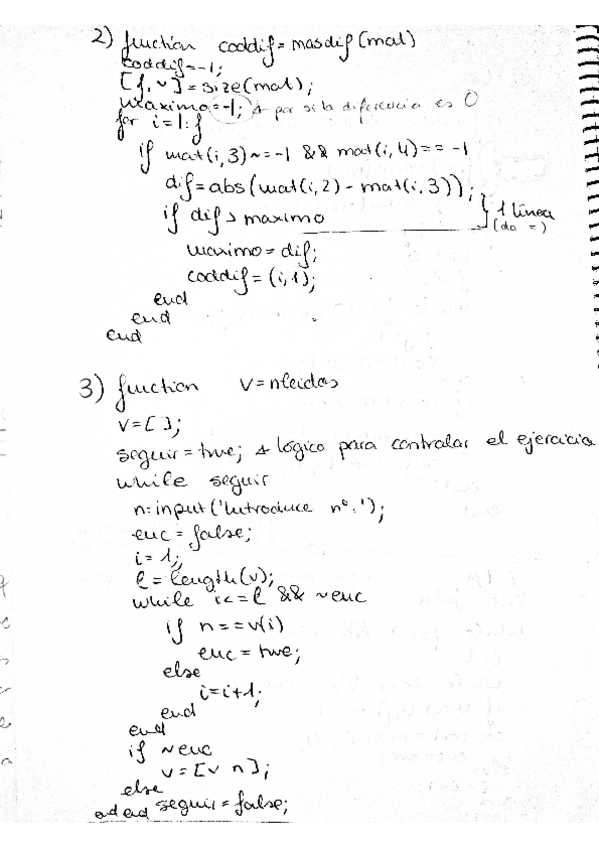 2) función coddif = masdif(mat)
coddif = -1;
[f, ~] = size(mat);
maximo = -1; Δ por si la diferencia es 0
for i = 1:f
if mat(i,3) ~= -1 && mat(i,4) == -1
dif = abs(mat(i,2) - mat(i,3));
if dif > maximo
} 1 línea
(da =)
maximo = dif;
coddif = (i,1);
end
end
end
3) function v = nleidos
v = [ ];
seguir = true; Δ lógico para controlar el ejercicio
while seguir
n: input('Introduce nº: ');
enc = false;
i = 1;
l = length(v);
while i <= l && ~enc
if n == v(i)
enc = true;
else
i = i+1;
end
end
if ~enc
v = [v n];
else
seguir = false;
end end